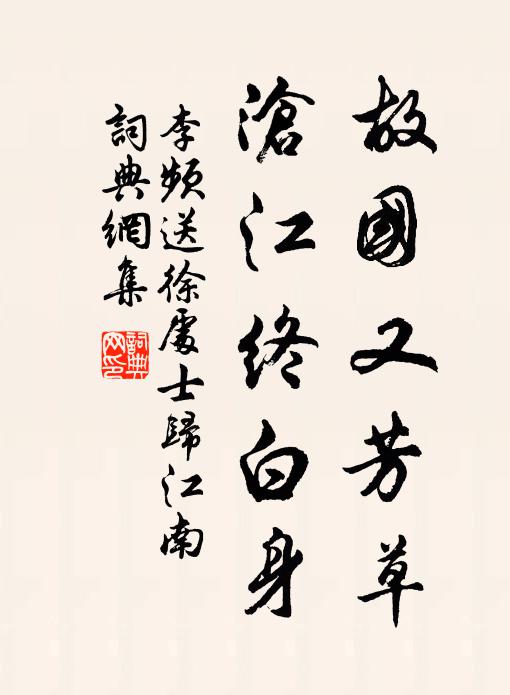 故國又芳草
滄江終白身
李頻送徐處士歸江南
詞典網集
詞典網印